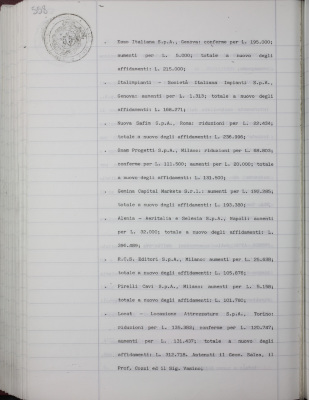 558
- Esso Italiana S.p.A., Genova: conferme per L. 195.000;
aumenti per L. 5.000; totale a nuovo degli
affidamenti: L. 215.000;
- Italimpianti - Società Italiana Impianti S.p.A.,
Genova: aumenti per L. 1.515; totale a nuovo degli
affidamenti: L. 166.271;
- Nuova Safim S.p.A., Roma: riduzioni per L.
totale a nuovo degli affidamenti: L. 236.996;
- Snam Progetti S.p.A., Milano: riduzioni per L.
conferme per L. 111.500; aumenti per L. 20.000; totale
a nuovo degli affidamenti: L. 131.500;
- Gemina Capital Markets S.r.l.: aumenti per L.
totale a nuovo degli affidamenti: L. 193.350;
- Alenia - Aeritalia e Selenia S.p.A., Napoli: aumenti
per L. 30.000; totale a nuovo degli affidamenti: L.
- Editori S.p.A., Milano: aumenti per L.
totale a nuovo degli affidamenti: L. 105.675;
- Pirelli Cavi S.p.A., Milano: aumenti per L. 5.150;
totale a nuovo degli affidamenti: L. 101.760;
- Locat - Locazione Attrezzature S.p.A., Torino:
riduzioni per L. conferme per L. 125.747;
aumenti per L. 131.437; totale a nuovo degli
affidamenti: L. 312.718. Astenuti il Geom. il
Prof. Cozzi ed il Sig.